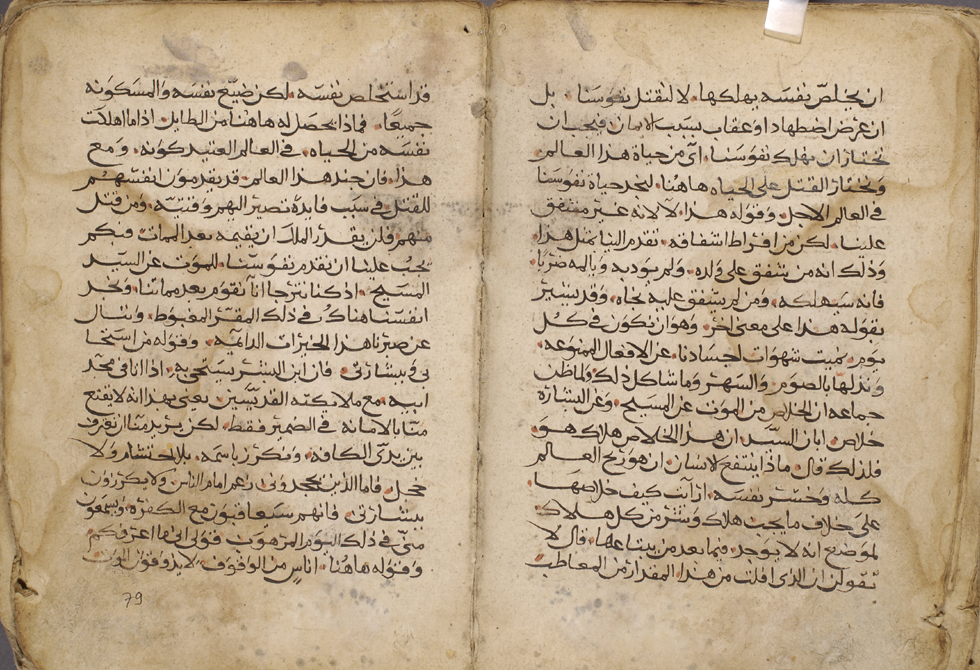 ان يخلص نفسه يهلكها. لا لنقتل نفوسنا. بل
ان عرض اضطهاد او عقاب بسبب الايمان فيجب ان
نختار ان نهلك نفوسنا. اي من حياة هذا العالم.
ونختار القتل على الحياه هاهنا. لنجد حياة نفوسنا
في العالم الاجل. وقوله هذا. لا لانه غير متفق
علينا. لكن من افراط اشفاقه. تقدم الينا بمثل هذا
وذلك انه من يشفق على ولده. ولم يودبه ويالمه ضربا
فانه سيهلكه. ومن لم يشفق عليه نجاه. وقد يشير
بقوله هذا على معنى اخر. وهو ان نكون في كل
يوم. نميت شهوات اجسادنا. عن الافعال الممنوعه.
ونذلها بالصوم. والسهر. وما شاكل ذلك. ولما ظن
جماعه ان الخلاص من الموت عن المسيح. وعن البشاره
خلاص. ابان السيد ان هذا الخلاص هلاك هو.
فلذلك قال. ماذا ينتفع لانسان. ان هو ربح العالم
كله وخسر نفسه. ارأيت كيف خلاصها.
على خلاف ما يجب هلاك وشر من كل هلاك
لموضع انه لا يوجد. فيما بعد من يبتاعها. قال لا
تقولن ان الذي افلت من هذا المقدار من المعاطب
قد استخلص نفسه. لكن ضيع نفسه والمسكونه
جميعا. فماذا يحصل له هاهنا من الطايل. اذا ما اهلكت
نفسه من الحياه. في العالم العتيد كونه. ومع
هذا. فان جند هذا العالم. قد يقدمون انفسهم
للقتل في سبب فايدة تصير اليهم وقتيه. ومن قتل
منهم فلن يقدر الملك ان يقيمه بعد الممات. فبكم
يجب علينا ان نقدم نفوسنا. للموت عن السيد
المسيح. اذ كنا نترجا انا نقوم بعد مماتنا. ونجد
انفسنا هناك في ذلك المقر المغبوط. وننال
عن صبرنا هذا الخيرات الدايمه. وقوله من استحا
بي وببشارتي. فان ابن البشر يستحي به. اذا اتا في مجد
ابيه. مع ملايكته القديسين. يعني بهذا انه لا يقنع
منا بالامانه في الضمير فقط. لكن يريد منا ان نعترف
بين يدي الكافه. ونكرز باسمه. بلا احتشام ولا
خجل. فاما الذين يجحدوني زعم امام الناس. ولا يكرزون
ببشارتي. فانهم سيعاقبون مع الكفره. ويسمعون
مني في ذلك اليوم المرهوب. قولي اني ما اعرفكم.
وقوله هاهنا. اناس من الوقوف. لا يذوقون الموت
79